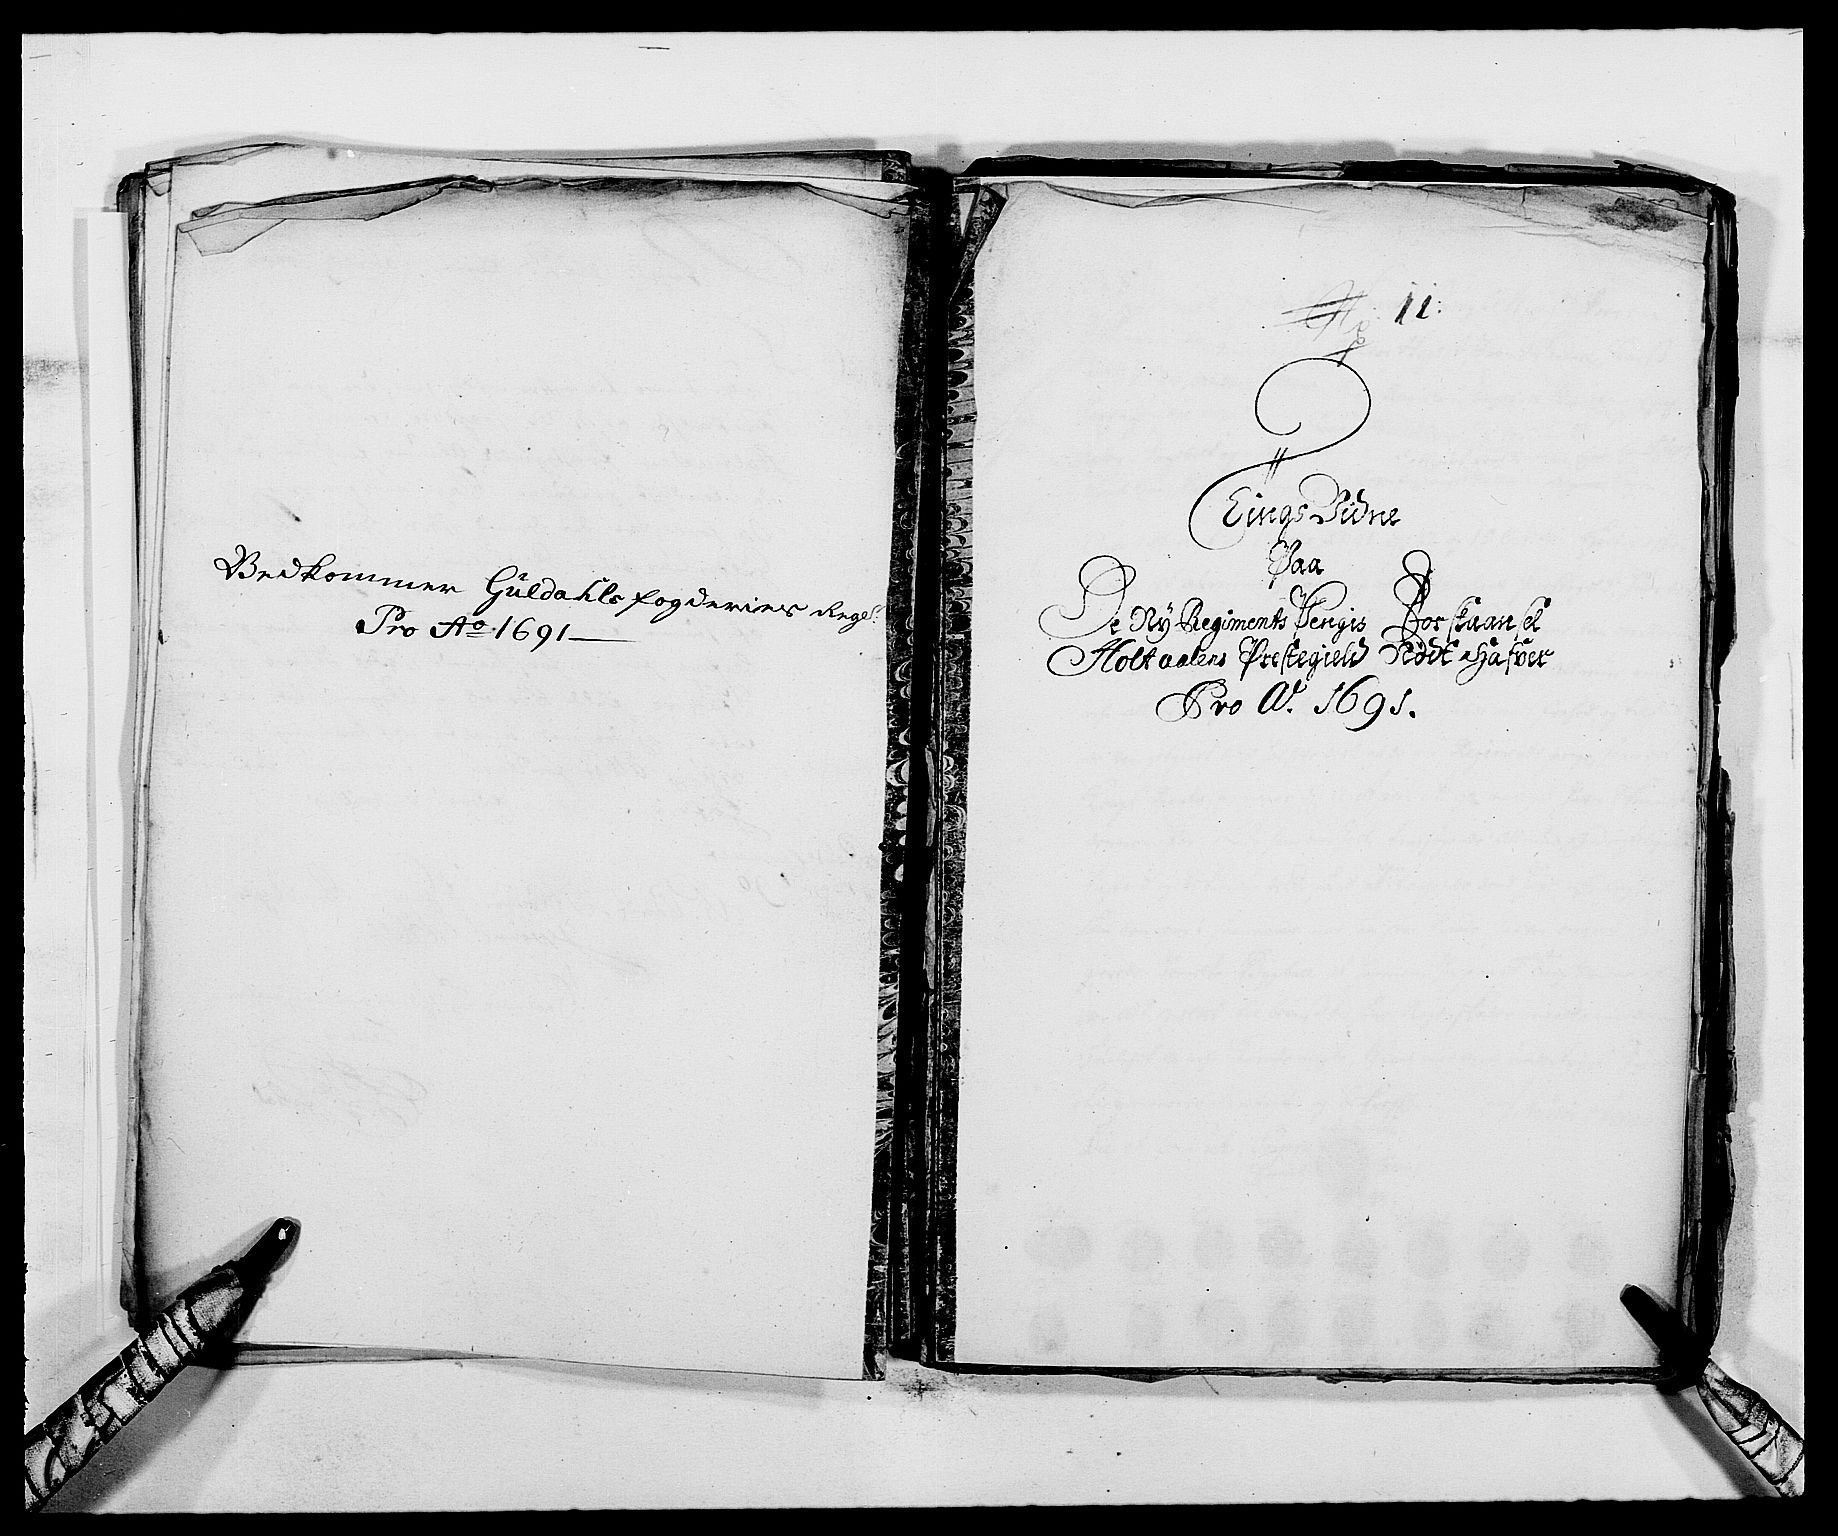 Vedkommer Güldahls fogderies Regsk:
Pro Ao 1691
No. 11:
Tings Vidne
Paa
De Ny Regiments Pengis Forskaansel
Holtaalens Præstegield Nödt Hafver
Pro Ao. 1691.